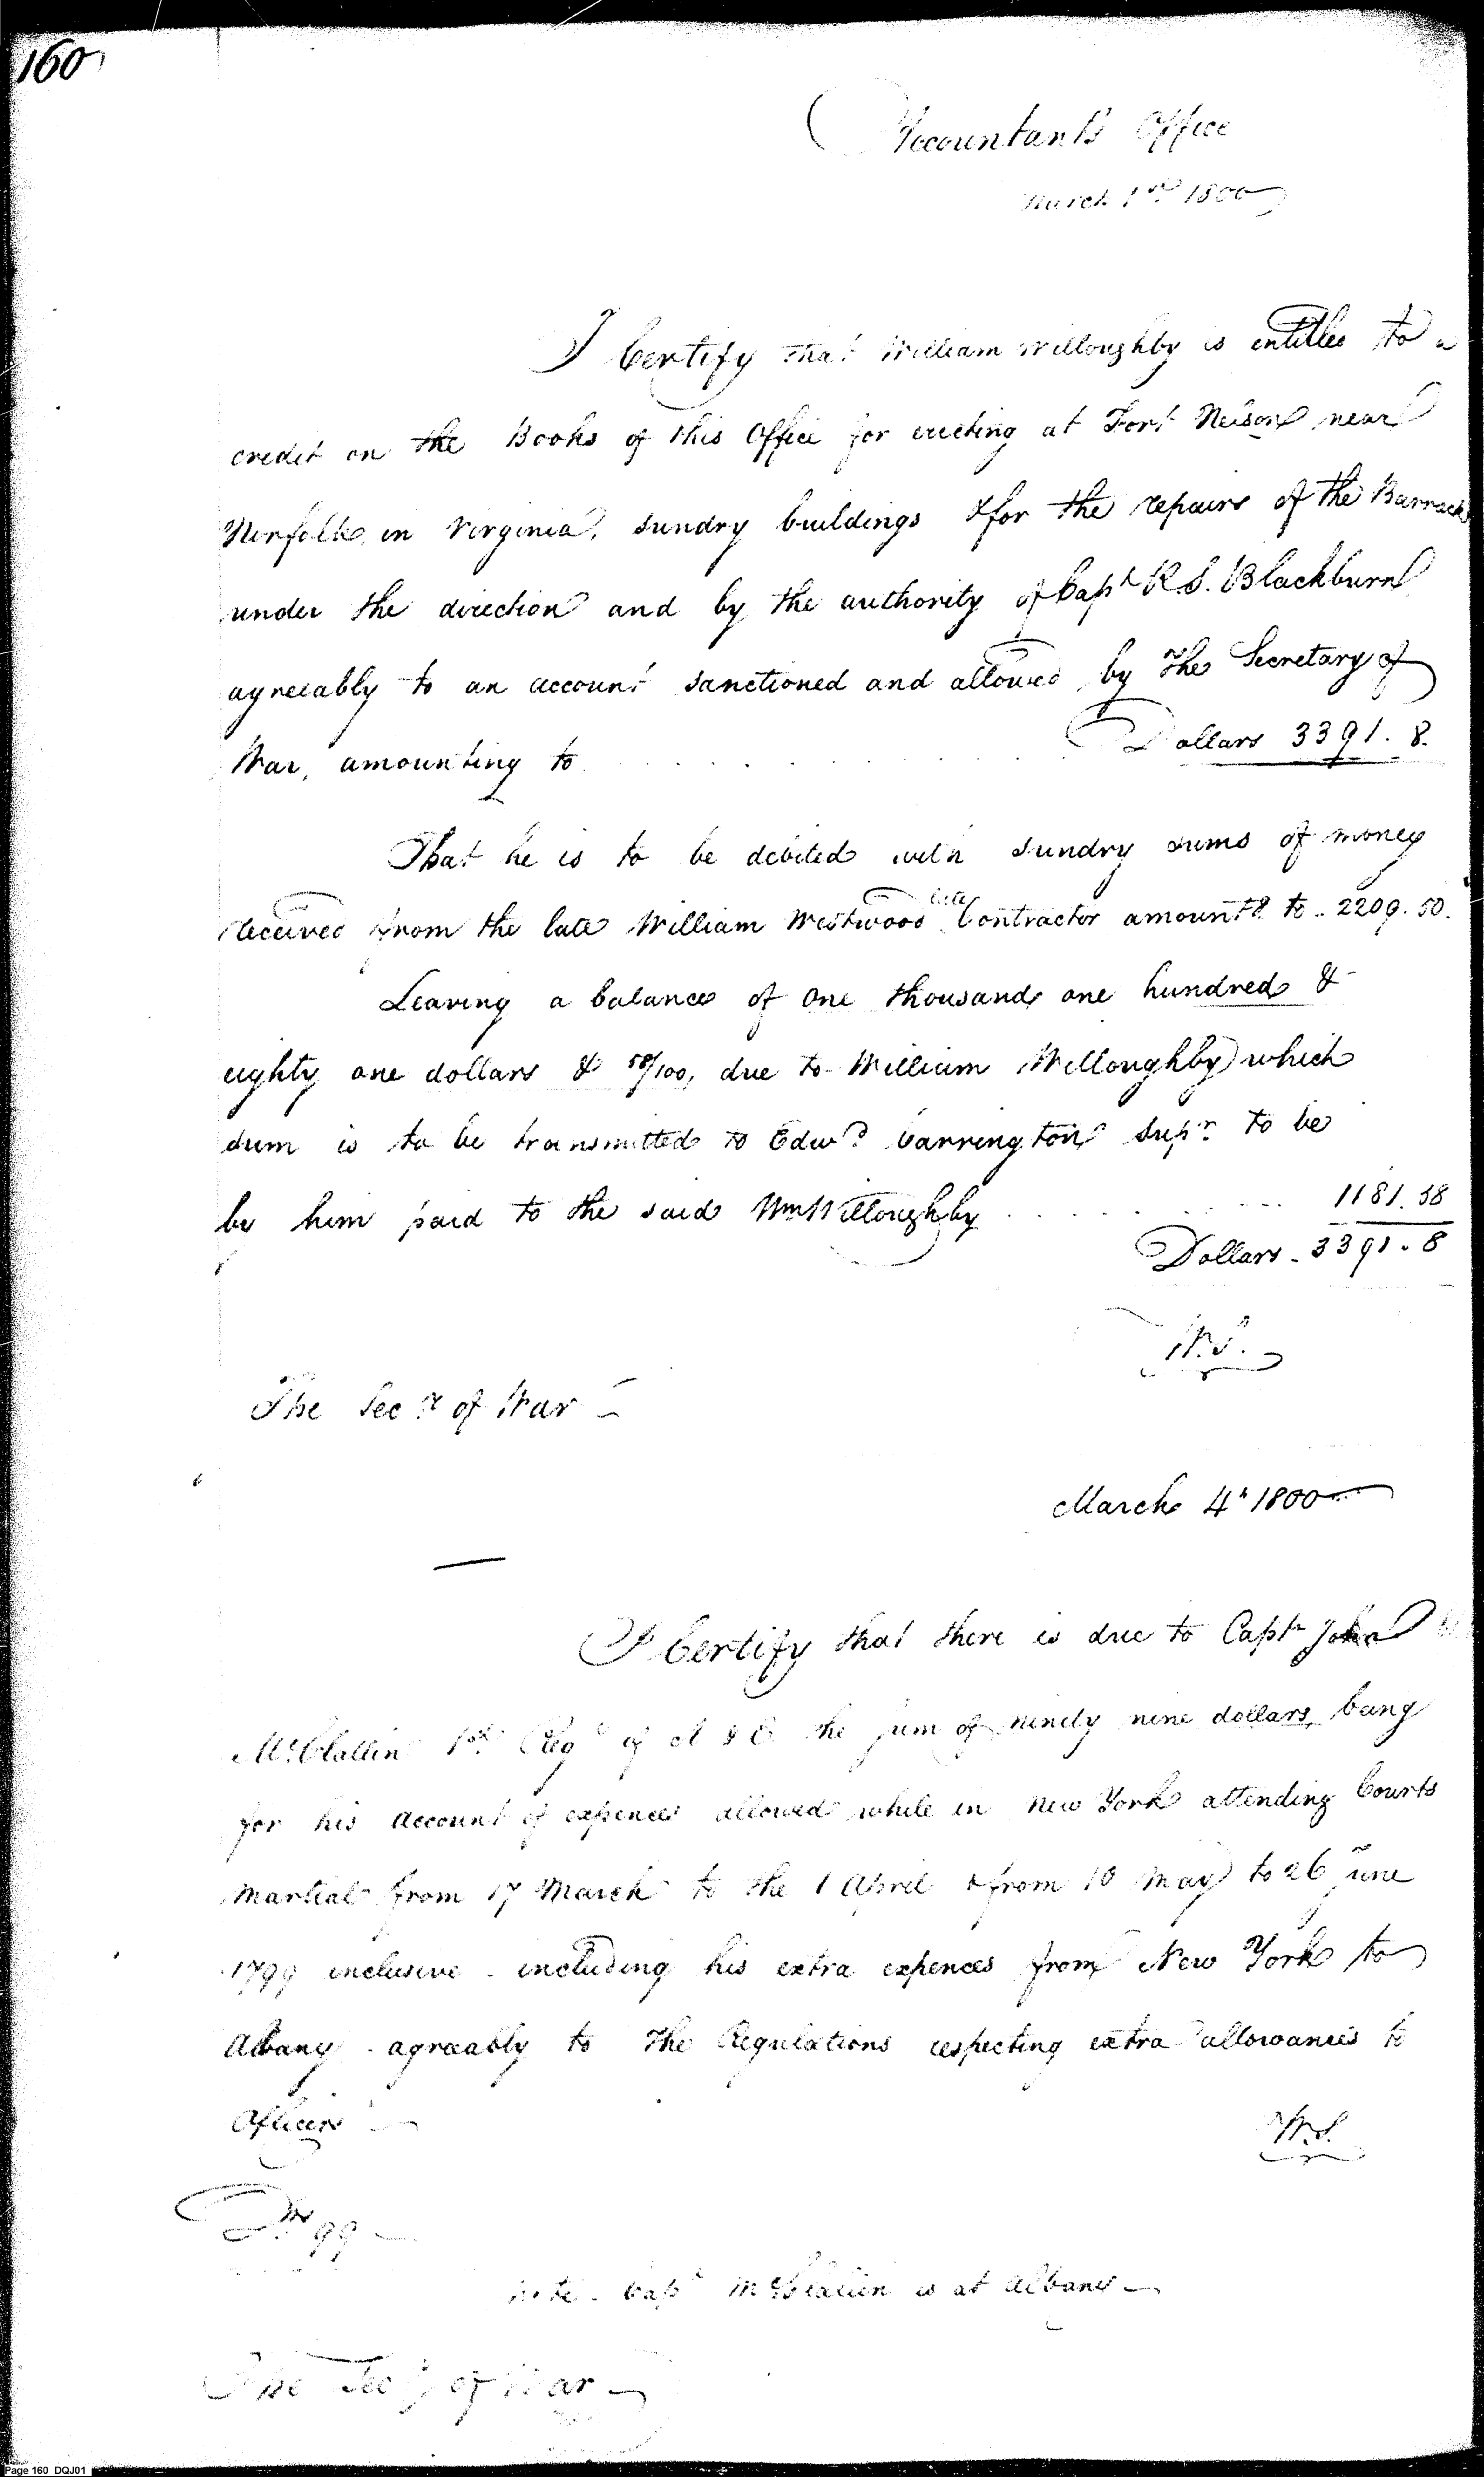 160
Accountants Office
March 1st 1800
I Certify that William Willoughby is entitled to a
credit on the Books of this Office for erecting at Fort Nelson near
Norfolk in Virginia, sundry buildings & for the repairs of the Barracks
under the direction and by the authority of Capt R. S. Blackburn
agreeably to an account sanctioned and allowed by the Secretary of
War, amounting to . . . . . . . . Dollars 3391. 8.
That he is to be debited with sundry sums of money
received from the late William Westwood late Contractor amountg to . 2209. 50.
Leaving a balance of one thousand one hundred &
eighty one dollars & 58/100, due to William Willoughby which
sum is to be transmitted to Edwd Carrington Supr to be
by him paid to the said Wm Willoughby . . . . . . . . . 1181. 58
Dollars . 3391. 8
W.S.
The Secy of War
March 4h 1800
I Certify that there is due to Captn John
McClallin 1st Regt of A & E the sum of ninety nine dollars, being
for his account of expences allowed while in New York attending Courts
martial from 17 March to the 1 April & from 10 May to 26 June
1799 inclusive . including his extra expences from New York to
Albany . agreeably to the Regulations respecting extra allowances to
Officers
W.S.
Drs 99
note . Capt McClallin is at Albany
The Secy of War
Page 160 DQJ01